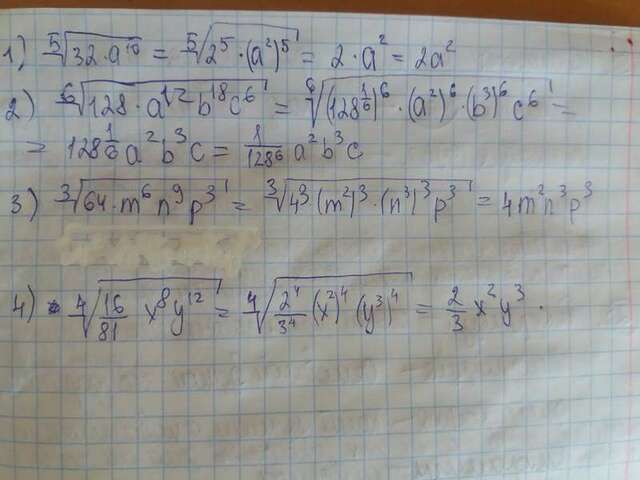 1) ⁵√32·a¹⁰ = ⁵√2⁵·(a²)⁵ = 2·a² = 2a²
2) ⁶√128·a¹²b¹⁸c⁶ = ⁶√(128^(1/6))⁶·(a²)⁶·(b³)⁶c⁶ =
= 128^(1/6)a²b³c = a²b³c
3) ³√64·m⁶n⁹p³ = ³√4³(m²)³·(n³)³p³ = 4m²n³p³
4) ⁴√16/81 x⁸y¹² = ⁴√2⁴/3⁴(x²)⁴(y³)⁴ = 2/3 x²y³.